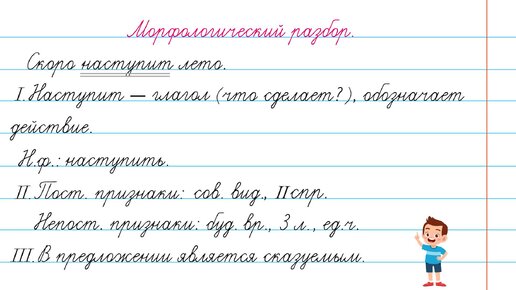 Морфологический разбор.
Скоро наступит лето.
I. Наступит — глагол (что сделает?), обозначает
действие.
Н.ф.: наступить.
II. Пост. признаки: сов. вид., II спр.
Непост. признаки: буд. вр., 3 л., ед.ч.
III. В предложении является сказуемым.